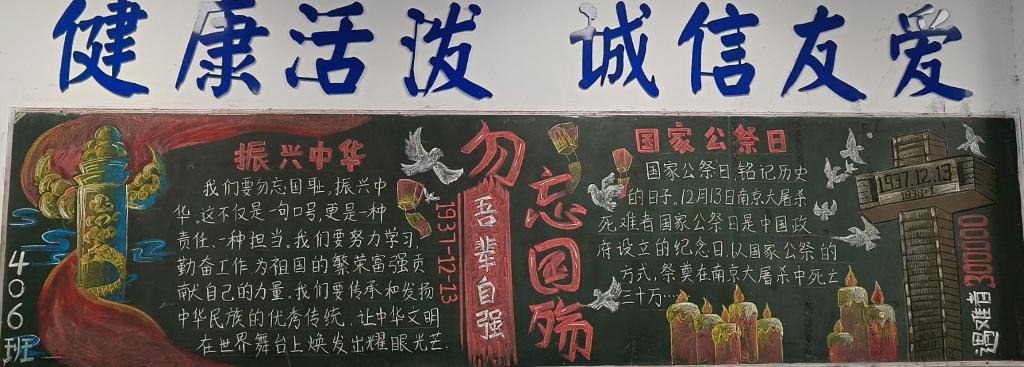 健康活泼 诚信友爱
406班
振兴中华
我们要勿忘国耻,振兴中
华,这不仅是一句口号,更是一种
责任,一种担当。我们要努力学习,
勤奋工作,为祖国的繁荣富强贡
献自己的力量。我们要传承和发扬
中华民族的优秀传统,让中华文明
在世界舞台上焕发出耀眼光芒
1937-12-13
勿忘国殇
吾辈自强
国家公祭日
国家公祭日,铭记历史
的日子。12月13日南京大屠杀
死难者国家公祭日是中国政
府设立的纪念日,以国家公祭的
方式,祭奠在南京大屠杀中死亡
三十万…
1937.12.13
遇难者 300000